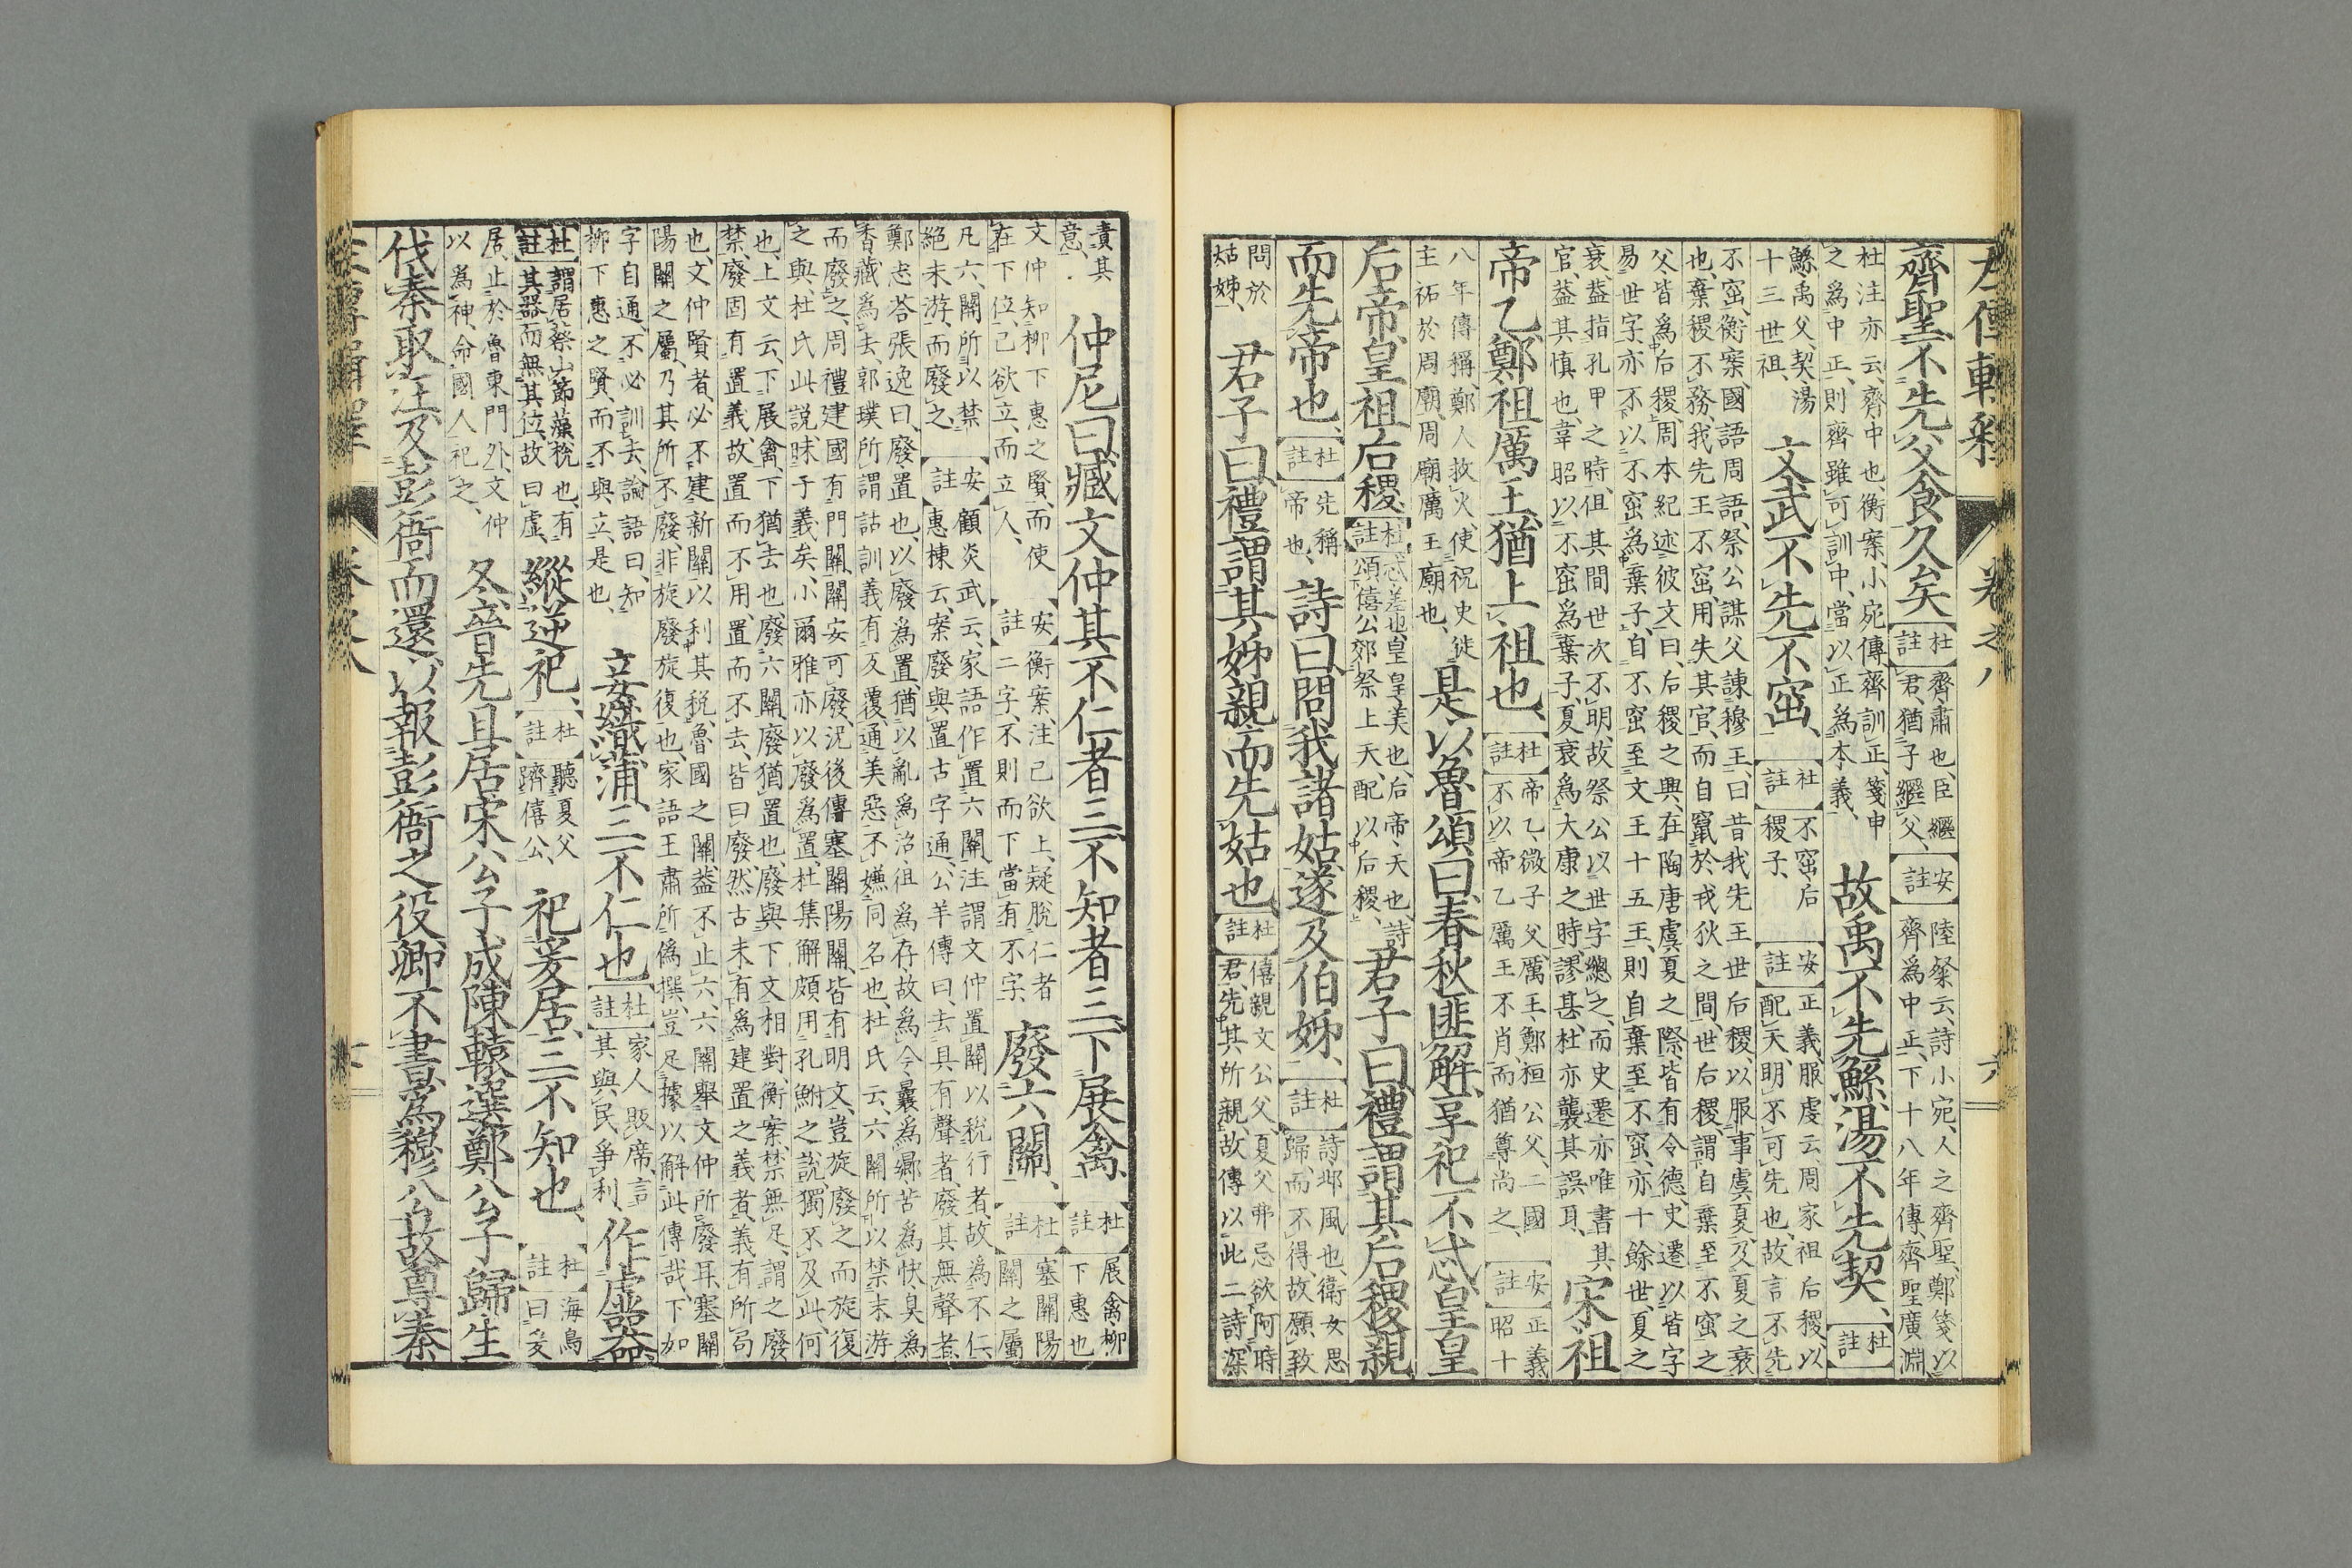 左傳輯釋 卷之八 六
齊聖不先父食久矣 杜註 齊肅也、臣繼君、猶子繼父、 安註 陸粲云、詩小宛、人之齊聖、鄭箋以齊爲中正、下十八年傳、齊聖廣淵
杜注亦云、齊中也、衡案、小宛傳、齊訓正、箋申之爲中正、則齊雖可訓中、當以正爲本義、 故禹不先鯀湯不先契、 杜註
鯀禹父、契湯十三世祖、 文武不先不窋、 杜註 不窋后稷子、 安註 正義服虔云、周家祖后稷、以配天、明不可先也、故言不先
不窋、衡案、國語周語、祭公謀父諫穆王曰、昔我先王世后稷、以服事虞夏、及夏之衰也、棄稷不務、我先王不窋、用失其官、而自竄於戎狄之間、世后稷、謂自棄至不窋之
父、皆爲后稷、周本紀述彼文曰、后稷之興、在陶唐虞夏之際、皆有令德、史遷以皆字易世字、亦不以不窋爲棄子、自不窋至文王十五王、則自棄至不窋、亦十餘世、夏之
衰、蓋指孔甲之時、但其間世次不明、故祭公以世字總之、而史遷亦唯書其官、蓋其慎也、韋昭以不窋爲棄子、夏衰爲大康之時、謬甚、杜亦襲其誤耳、 宋祖
帝乙鄭祖厲王猶上祖也、 杜註 帝乙、微子父、厲王、鄭桓公父、二國不以帝乙厲王不肖、而猶尊尚之、 安註 正義昭十
八年傳稱、鄭人救火、使祝史徙主祏於周廟、周廟厲王廟也、 是以魯頌曰春秋匪解享祀不忒皇皇
后帝皇祖后稷、 杜註 忒差也、皇皇美也、后帝天也、詩頌僖公郊祭上天、配以后稷、 君子曰禮謂其后稷親
而先帝也、 杜註 先稱帝也、 詩曰問我諸姑遂及伯姊、 杜註 詩邶風也、衛女思歸、而不得、故願致
問於姑姊、 君子曰禮謂其姊親而先姑也、 杜註 僖親文公父、夏父弗忌欲阿時君、先其所親、故傳以此二詩深
責其意、 仲尼曰臧文仲其不仁者三不知者三下展禽、 杜註 展禽柳下惠也
文仲知柳下惠之賢、而使在下位、己欲立、而立人、 安註 衡案、注己欲上、疑脫仁者二字、不則而下當有不字、 廢六關、 杜註 塞關陽關之屬
凡六、關所以禁絕末游、而廢之、 安註 顧炎武云、家語作置六關、注謂文仲置關以稅行者、故爲不仁、惠棟云、案廢與置古字通、公羊傳曰、去具有聲者、廢其無聲者、
鄭志荅張逸曰、廢置也、以廢爲置、猶以亂爲治、徂爲存、故爲今、曩爲曏、苦爲快、臭爲香、藏爲去、郭璞所謂詁訓義有反覆、通美惡不嫌同名也、杜氏云、六關所以禁末游
而廢之、周禮建國有門關、關安可廢、況後傳塞關陽關、皆有明文、豈旋廢之、而旋復之與、杜氏此說、昧于義矣、小爾雅亦以廢爲置、杜集解頗用孔鮒之說、獨不及此何
也、上文云、下展禽、下猶去也、廢六關、廢猶置也、廢與下文相對、衡案、禁無足、謂之廢禁、廢固有置義、故置而不用、置而不去、皆曰廢、然古未有爲建置之義者、義有所局
也、文仲賢者、必不建新關以利其稅、魯國之關、蓋不止六、六關舉文仲所廢耳、塞關陽關之屬、乃其所不廢、非旋廢旋復也、家語王肅所僞撰、豈足據以解此傳哉、下如
字自通、不必訓去、論語曰、知柳下惠之賢、而不與立、是也、 妾織蒲三不仁也、 杜註 家人販席、言其與民爭利、 作虛器
杜註 謂居蔡山節藻梲也、有其器而無其位、故曰虛、 縱逆祀、 杜註 聽夏父躋僖公、 祀爰居三不知也、 杜註 海鳥曰爰
居、止於魯東門外、文仲以爲神、命國人祀之、 冬晉先且居宋公子成陳轅選鄭公子歸生
伐秦取汪及彭衙而還以報彭衙之役卿不書爲穆公故尊秦